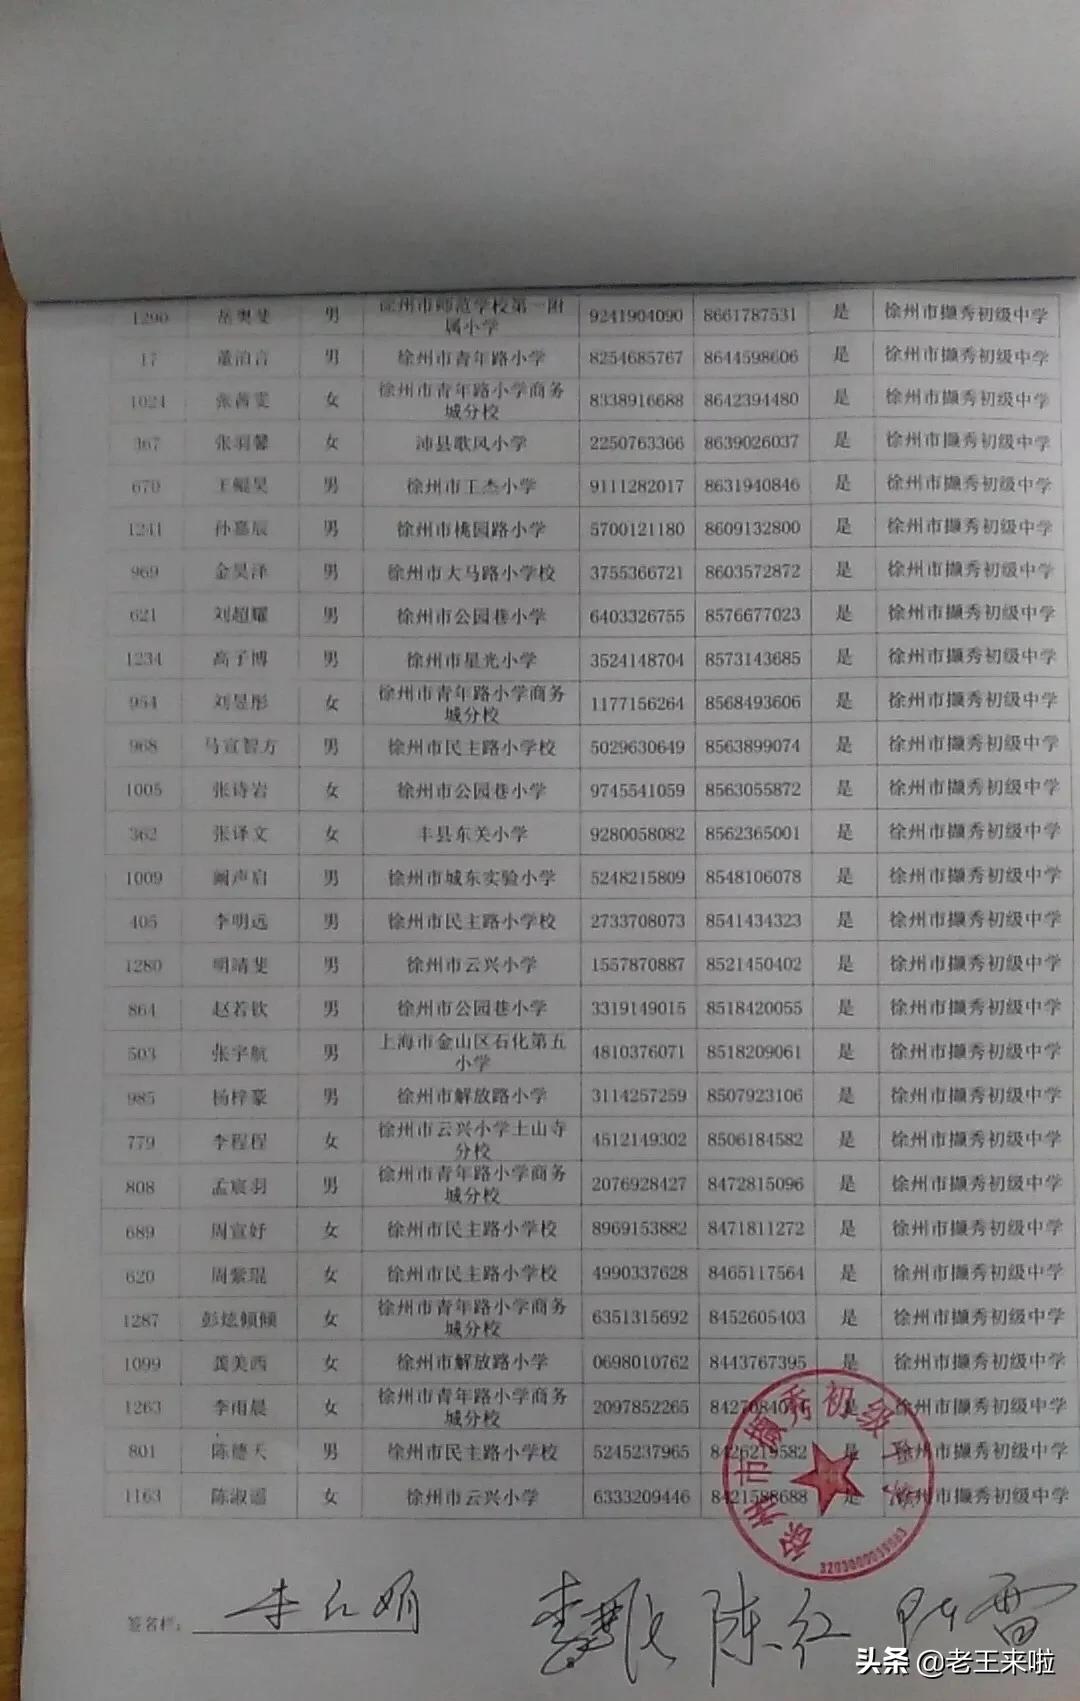 1290 岳奥斐 男 徐州市师范学校第一附属小学 9241904090 8661787531 是 徐州市撷秀初级中学
17 董泊言 男 徐州市青年路小学 8254685767 8644598606 是 徐州市撷秀初级中学
1024 张茜雯 女 徐州市青年路小学商务城分校 8338916688 8642394480 是 徐州市撷秀初级中学
367 张羽馨 女 沛县歌风小学 2250763366 8639026037 是 徐州市撷秀初级中学
670 王鲲昊 男 徐州市王杰小学 9111282017 8631940846 是 徐州市撷秀初级中学
1241 孙嘉辰 男 徐州市桃园路小学 5700121180 8609132800 是 徐州市撷秀初级中学
969 金昊泽 男 徐州市大马路小学校 3755366721 8603572872 是 徐州市撷秀初级中学
621 刘超耀 男 徐州市公园巷小学 6403326755 8576677023 是 徐州市撷秀初级中学
1234 高子博 男 徐州市星光小学 3524148704 8573143685 是 徐州市撷秀初级中学
954 刘昱彤 女 徐州市青年路小学商务城分校 1177156264 8568493606 是 徐州市撷秀初级中学
968 马宣智方 男 徐州市民主路小学校 5029630649 8563899074 是 徐州市撷秀初级中学
1005 张诗岩 女 徐州市公园巷小学 9745541059 8563055872 是 徐州市撷秀初级中学
362 张译文 女 丰县东关小学 9280058082 8562365001 是 徐州市撷秀初级中学
1009 阚声启 男 徐州市城东实验小学 5248215809 8548106078 是 徐州市撷秀初级中学
405 李明远 男 徐州市民主路小学校 2733708073 8541434323 是 徐州市撷秀初级中学
1280 明靖斐 男 徐州市云兴小学 1557870887 8521450402 是 徐州市撷秀初级中学
864 赵若钦 男 徐州市公园巷小学 3319149015 8518420055 是 徐州市撷秀初级中学
503 张宇航 男 上海市金山区石化第五小学 4810376071 8518209061 是 徐州市撷秀初级中学
985 杨梓豪 男 徐州市解放路小学 3114257259 8507923106 是 徐州市撷秀初级中学
779 李程程 女 徐州市云兴小学土山寺分校 4512149302 8506184582 是 徐州市撷秀初级中学
808 孟宸羽 男 徐州市青年路小学商务城分校 2076928427 8472815096 是 徐州市撷秀初级中学
689 周宣妤 女 徐州市民主路小学校 8969153882 8471811272 是 徐州市撷秀初级中学
620 周紫琨 女 徐州市民主路小学校 4990337628 8465117564 是 徐州市撷秀初级中学
1287 彭炫倾倾 女 徐州市青年路小学商务城分校 6351315692 8452605403 是 徐州市撷秀初级中学
1099 龚美西 女 徐州市解放路小学 0698010762 8443767395 是 徐州市撷秀初级中学
1263 李雨晨 女 徐州市青年路小学商务城分校 2097852265 是 徐州市撷秀初级中学
801 陈德天 男 徐州市民主路小学校 5245237965 8426219582 是 徐州市撷秀初级中学
1163 陈淑谣 女 徐州市云兴小学 6333209446 8421588688 是 徐州市撷秀初级中学
徐州市撷秀初级中学
签名栏:
陈红
头条 @老王来啦